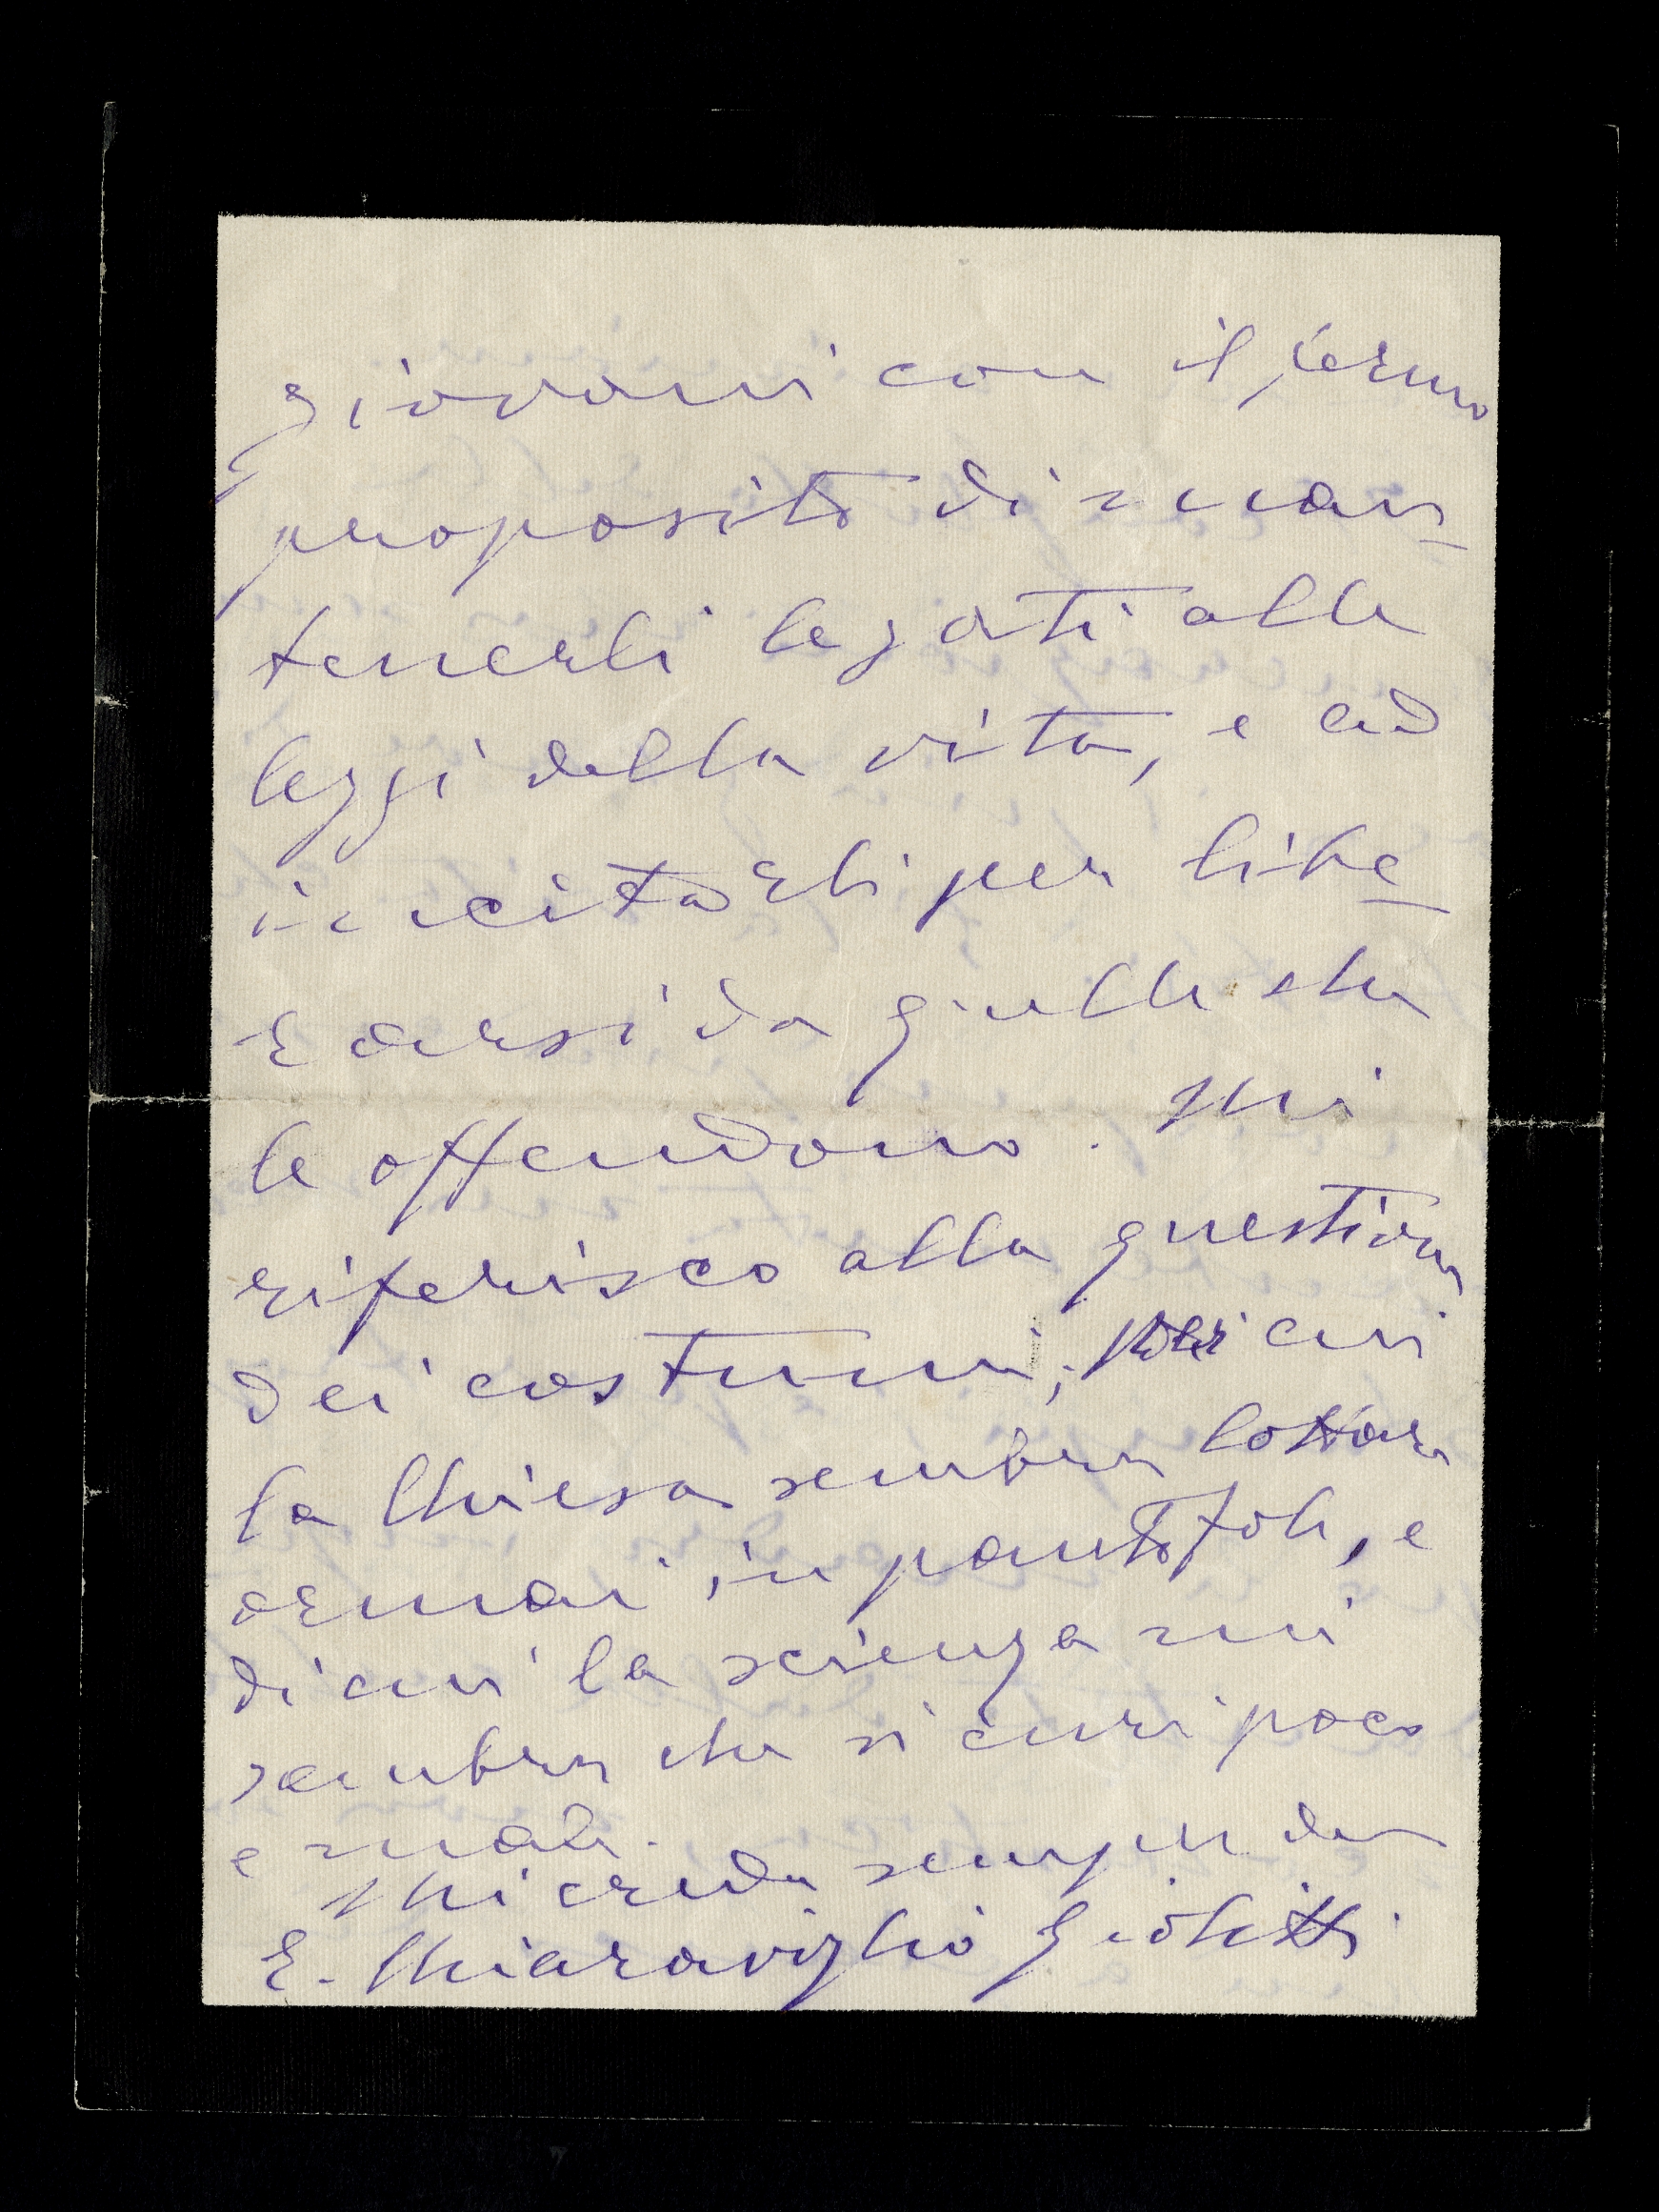 giovani con il fermo
proposito di man-
tenerli legati alle
leggi della vita, e ad
incitarli per libe-
rarsi da quelle che
le offendono. Mi
riferisco alla questione
dei costumi, per cui
la Chiesa sembra lottare
ormai in pantofole, e
di cui la scienza mi
sembra che si curi poco
e male.
Mi creda sempre dev
E. Chiaraviglio Giolitti.